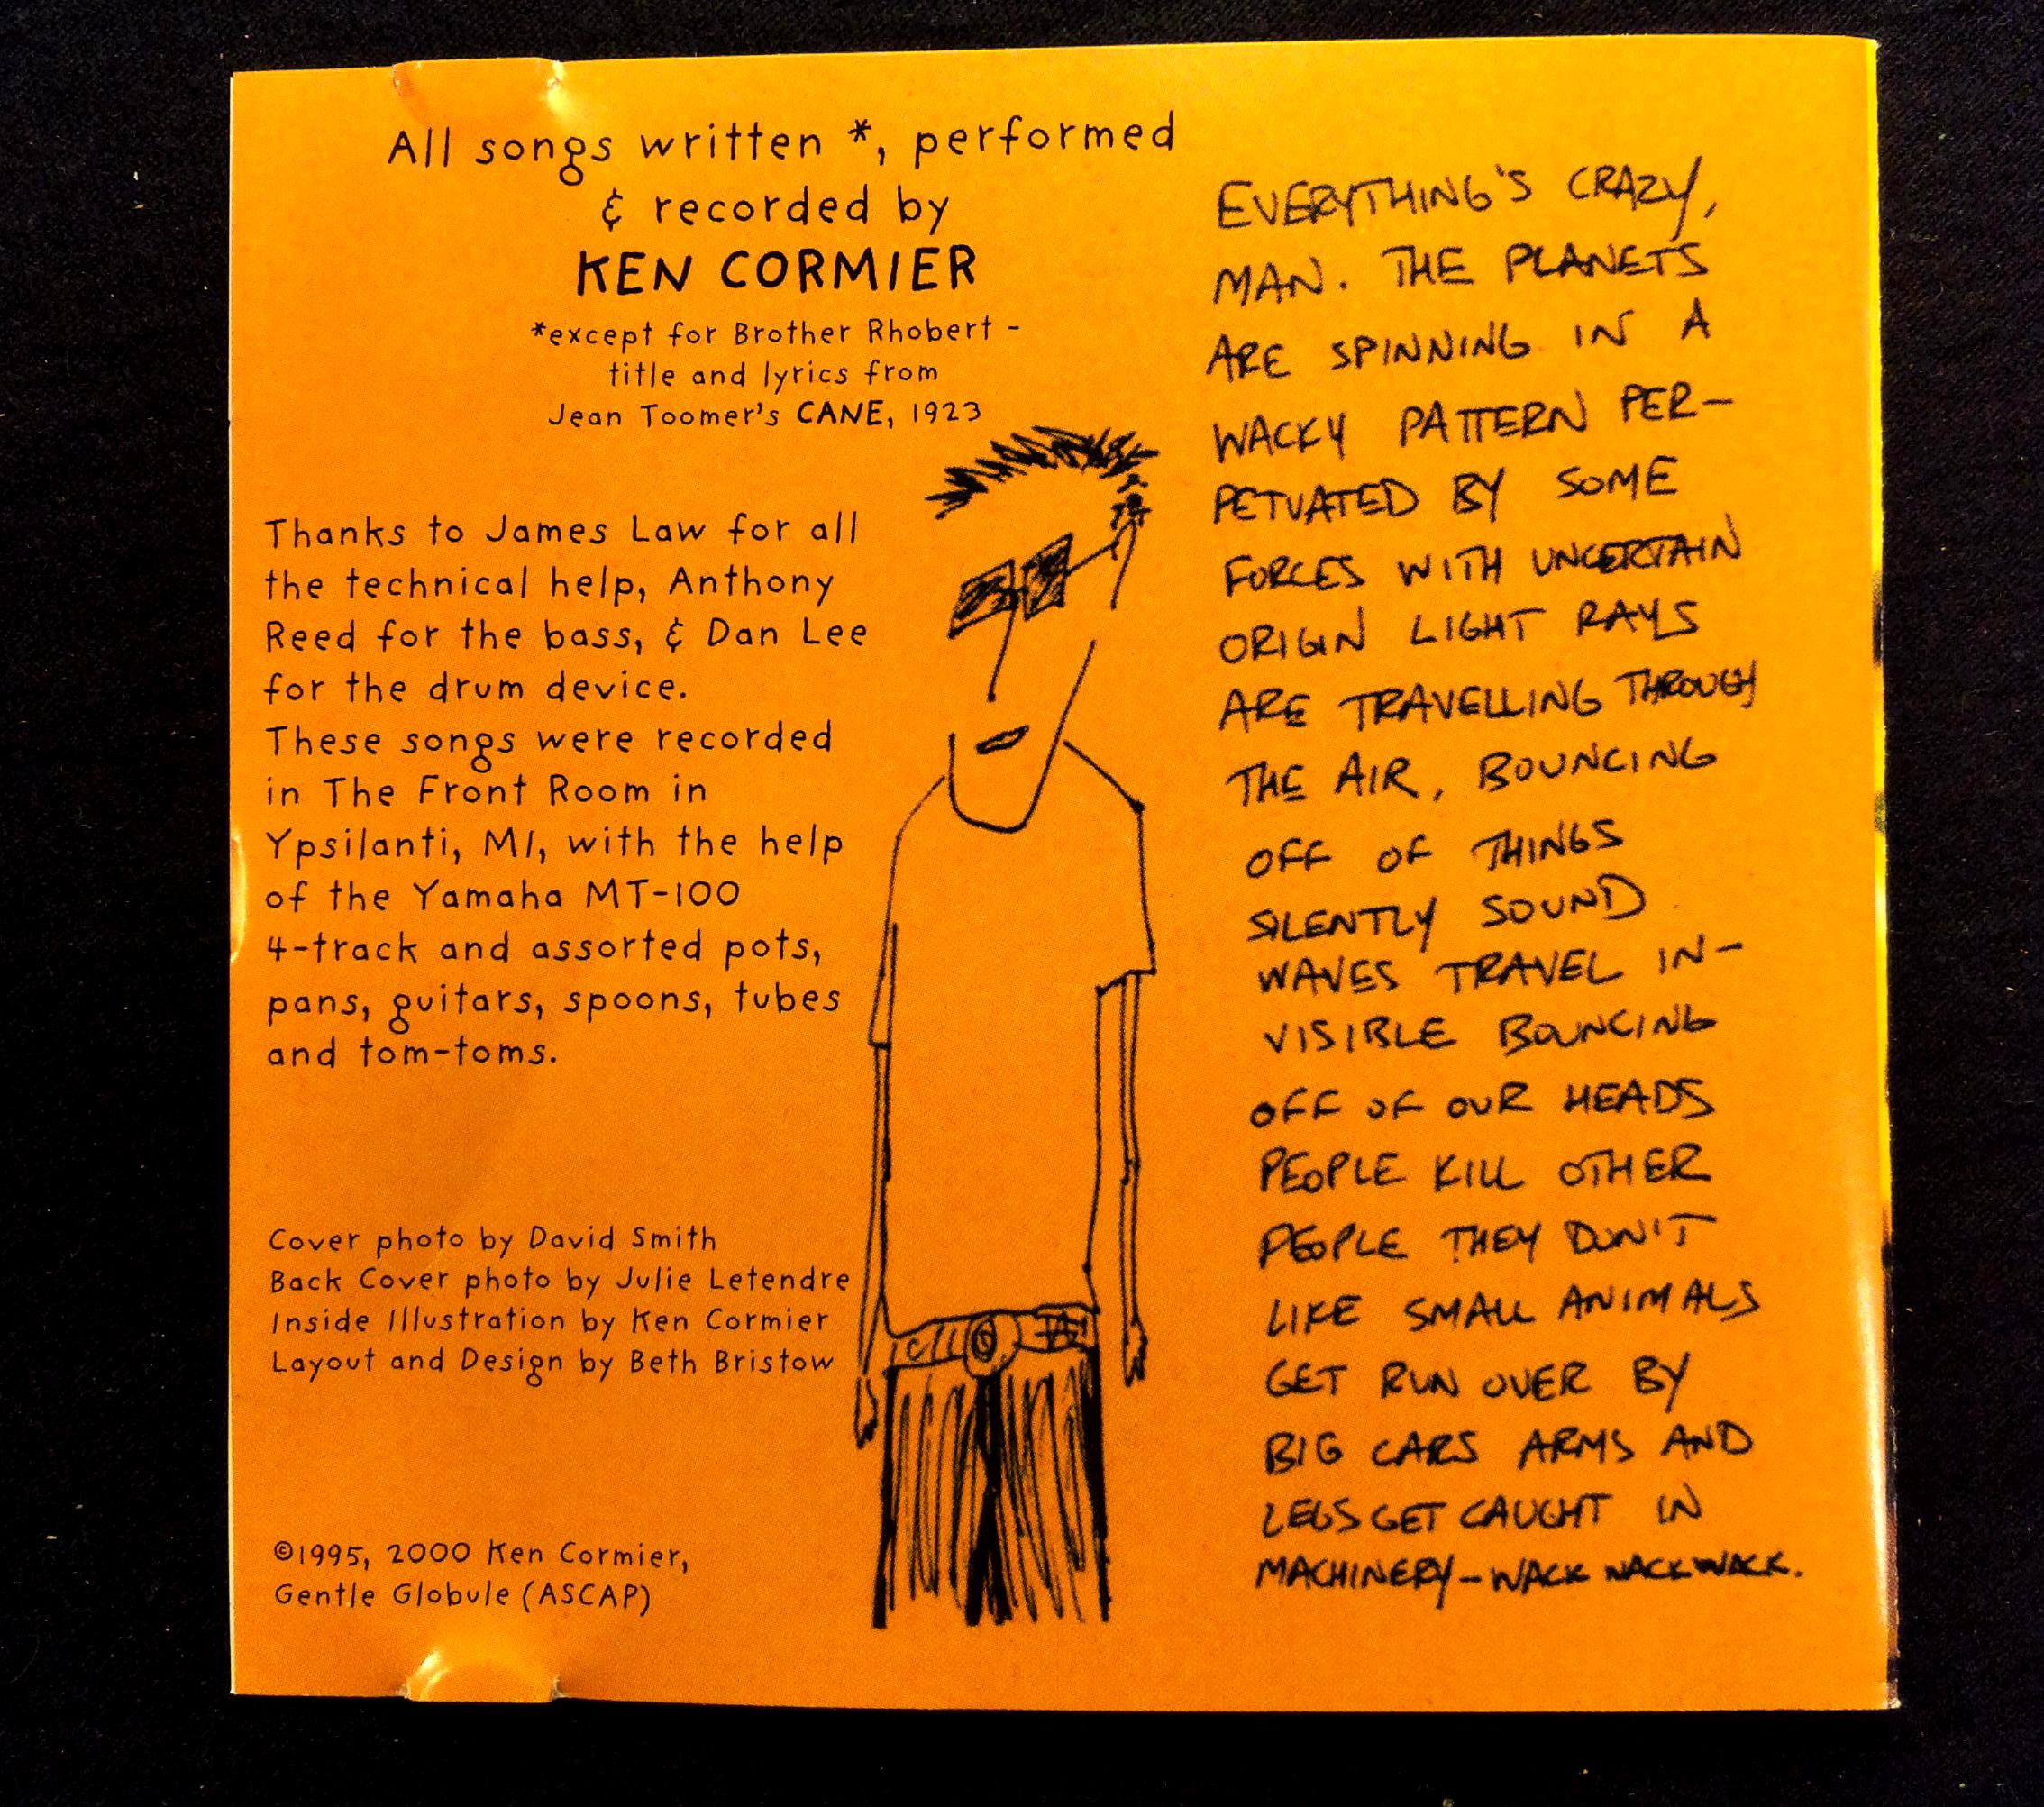 All songs written *, performed
& recorded by
KEN CORMIER
*except for Brother Rhobert -
title and lyrics from
Jean Toomer's CANE, 1923
Thanks to James Law for all
the technical help, Anthony
Reed for the bass, & Dan Lee
for the drum device.
These songs were recorded
in The Front Room in
Ypsilanti, MI, with the help
of the Yamaha MT-100
4-track and assorted pots,
pans, guitars, spoons, tubes
and tom-toms.
Cover photo by David Smith
Back Cover photo by Julie Letendre
Inside Illustration by Ken Cormier
Layout and Design by Beth Bristow
©1995, 2000 Ken Cormier,
Gentle Globule (ASCAP)
EVERYTHING'S CRAZY,
MAN. THE PLANETS
ARE SPINNING IN A
WACKY PATTERN PER-
PETUATED BY SOME
FORCES WITH UNCERTAIN
ORIGIN LIGHT RAYS
ARE TRAVELLING THROUGH
THE AIR, BOUNCING
OFF OF THINGS
SILENTLY SOUND
WAVES TRAVEL IN-
VISIBLE BOUNCING
OFF OF OUR HEADS
PEOPLE KILL OTHER
PEOPLE THEY DON'T
LIKE SMALL ANIMALS
GET RUN OVER BY
BIG CARS ARMS AND
LEGS GET CAUGHT IN
MACHINERY-WACK WACK WACK.